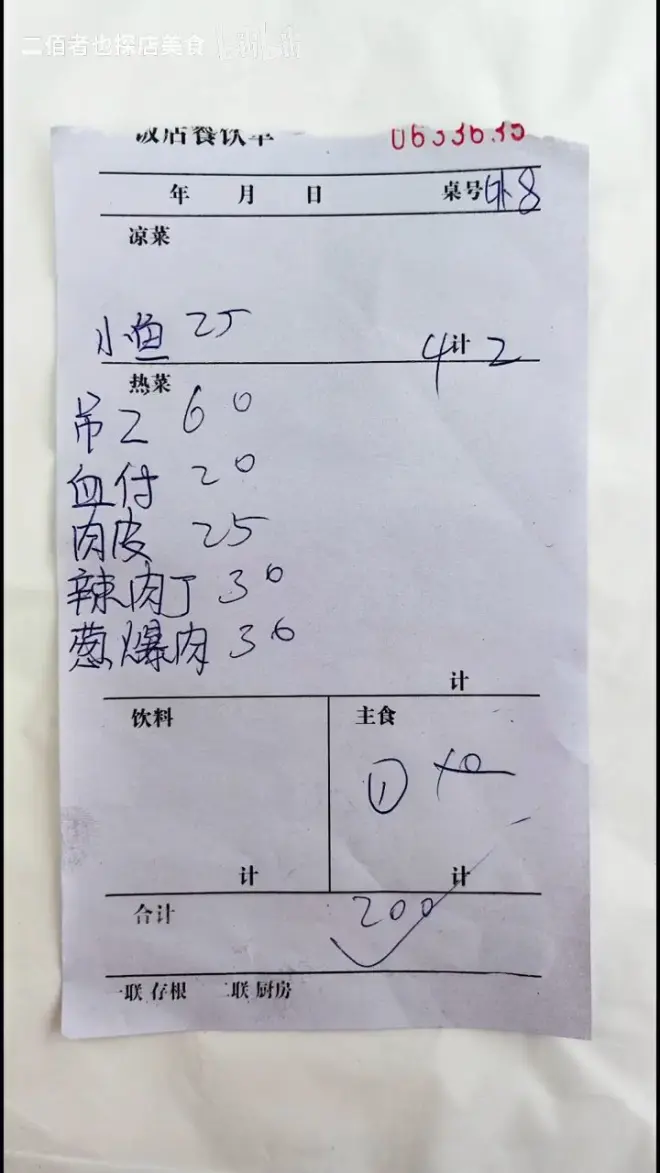 二佰者也探店美食
饭店餐饮单 0633635
年 月 日 桌号外8
凉菜
小鱼 25
4计2
热菜
吊子 60
血付 20
肉皮 25
辣肉丁 30
葱爆肉 30
计
饮料 主食
① 10
计 计
合计 200
一联 存根 二联 厨房